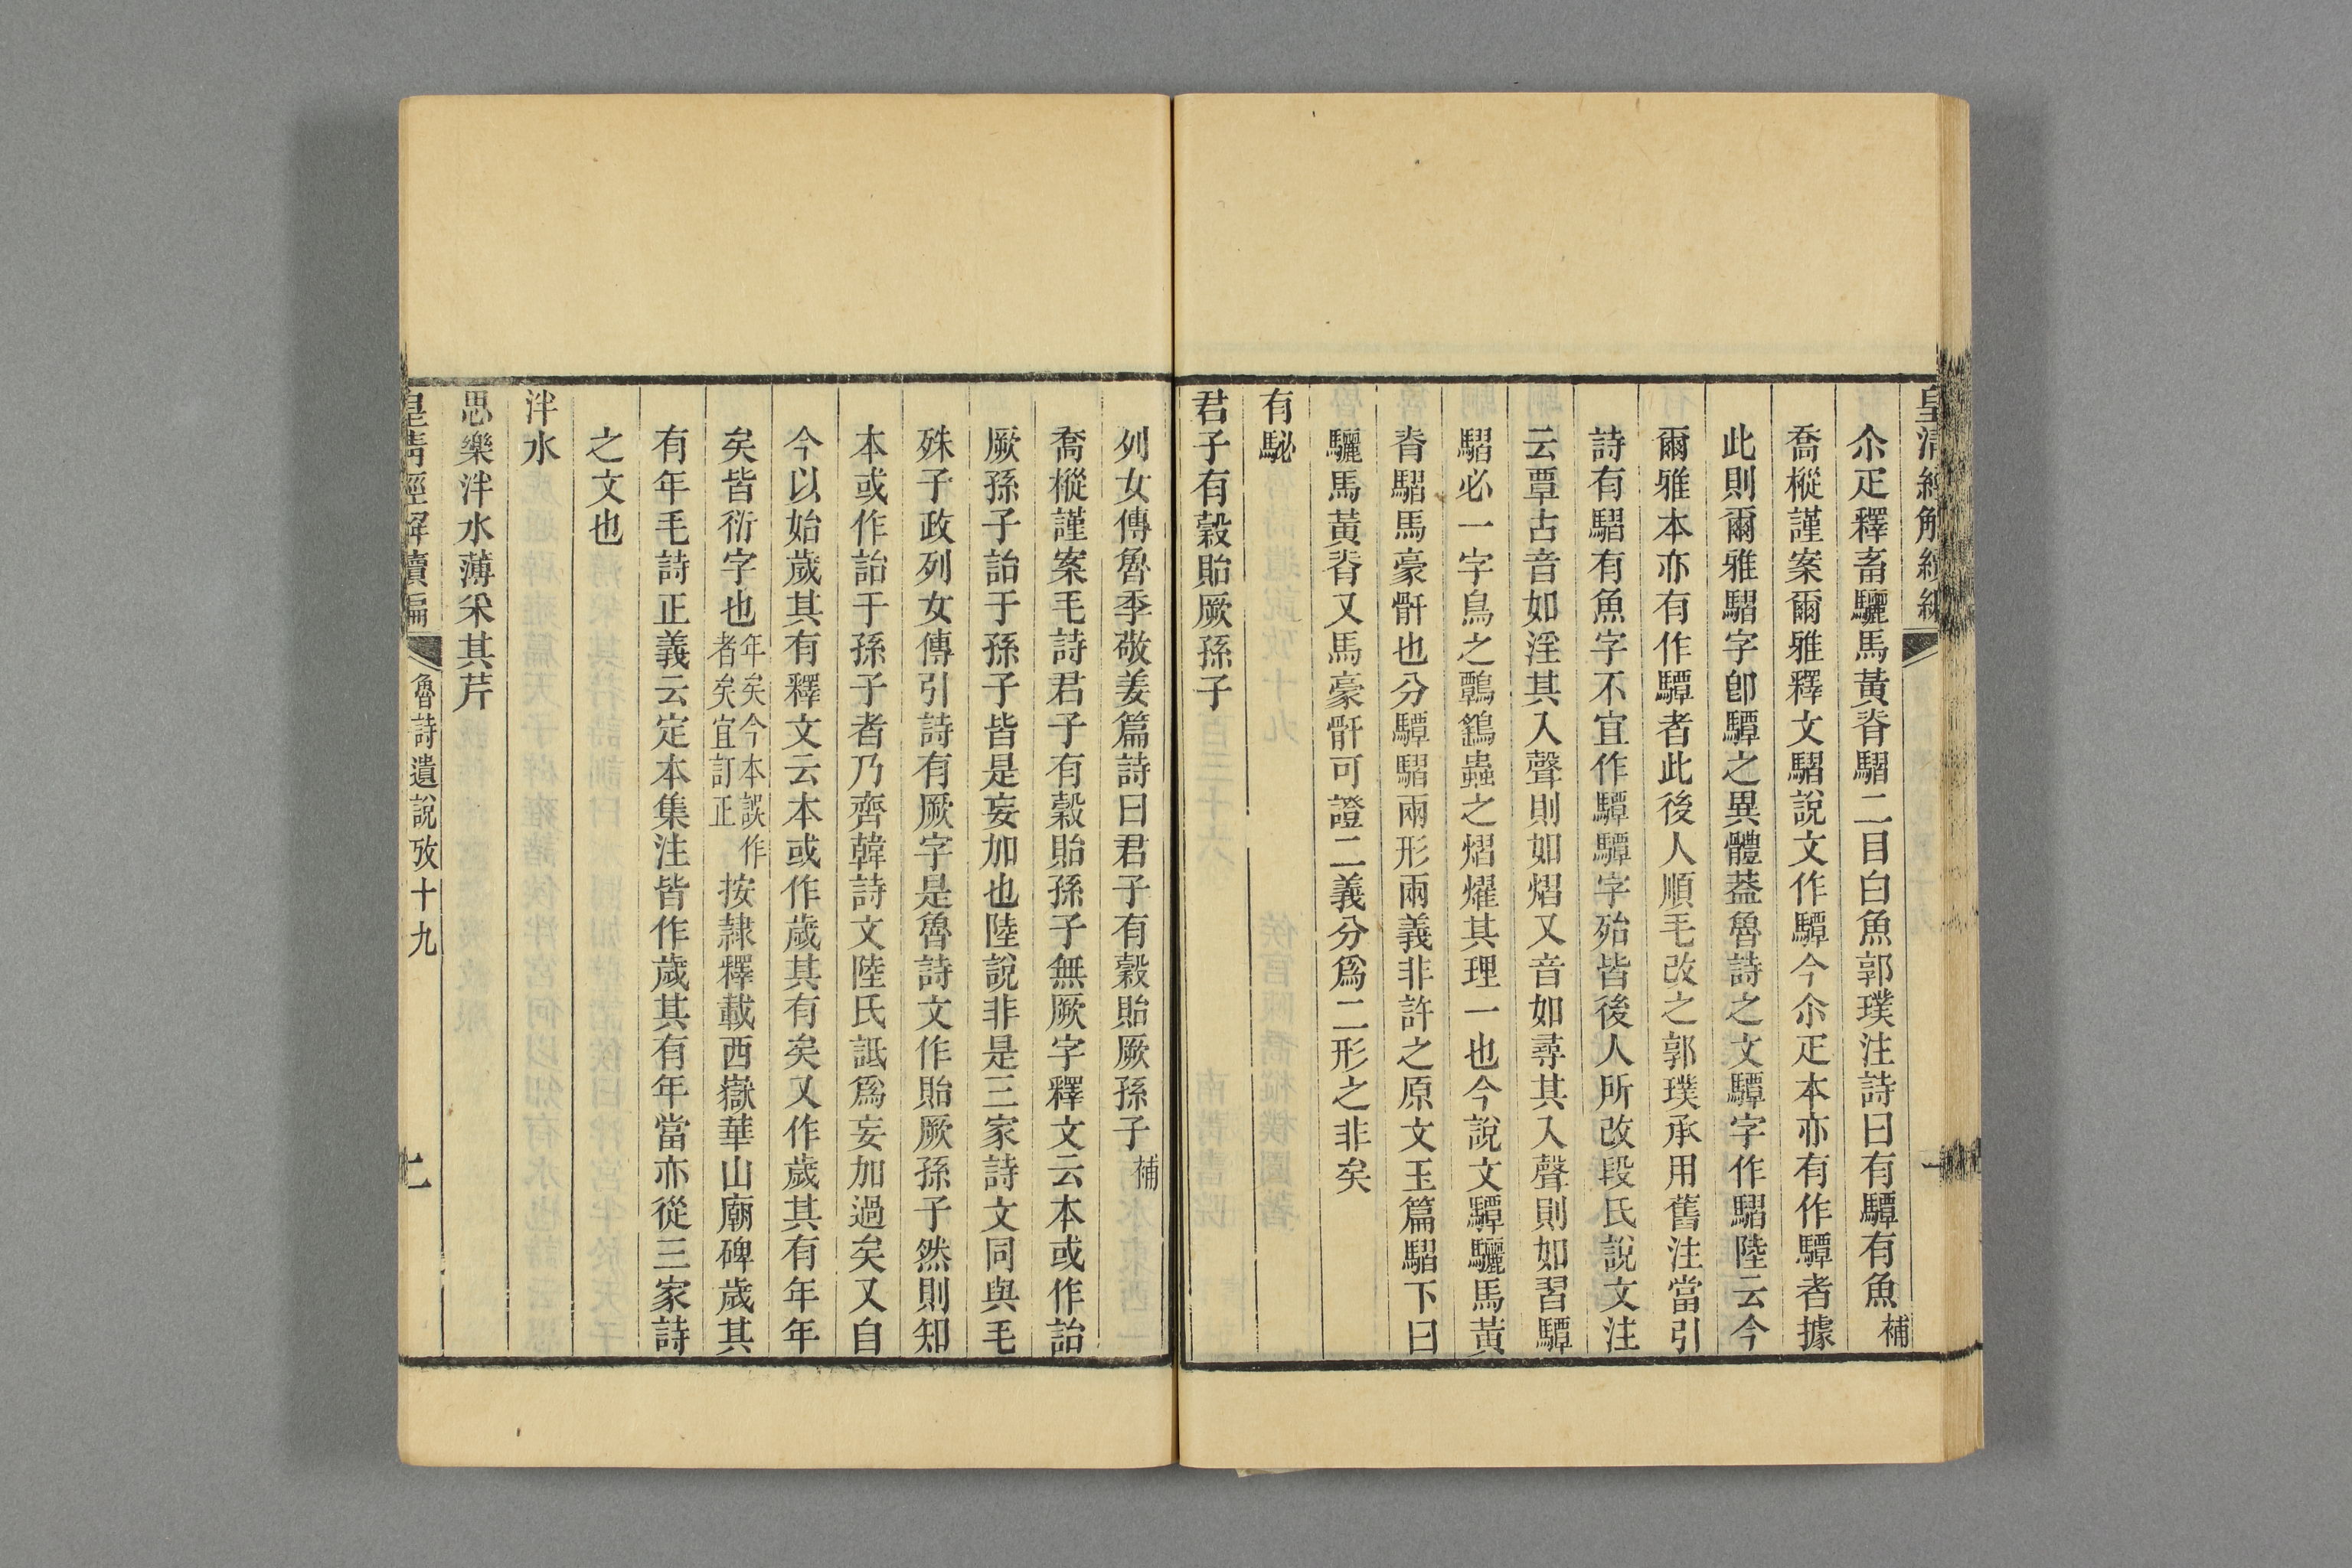 皇清經解續編
尒疋釋畜驪馬黃脊騽二目白魚郭璞注詩曰有驔有魚補
喬樅謹案爾雅釋文騽說文作驔今尒疋本亦有作驔者據
此則爾雅騽字卽驔之異體葢魯詩之文驔字作騽陸云今
爾雅本亦有作驔者此後人順毛改之郭璞承用舊注當引
詩有騽有魚字不宜作驔驔字殆皆後人所改段氏說文注
云覃古音如淫其入聲則如熠又音如尋其入聲則如習驔
騽必一字鳥之鷣鷂蟲之熠燿其理一也今說文驔驪馬黃
脊騽馬豪骭也分驔騽兩形兩義非許之原文玉篇騽下曰
驪馬黃脊又馬豪骭可證二義分爲二形之非矣
有駜
君子有穀貽厥孫子
列女傳魯季敬姜篇詩曰君子有穀貽厥孫子補
喬樅謹案毛詩君子有穀貽孫子無厥字釋文云本或作詒
厥孫子詒于孫子皆是妄加也陸說非是三家詩文同與毛
殊子政列女傳引詩有厥字是魯詩文作貽厥孫子然則知
本或作詒于孫子者乃齊韓詩文陸氏詆爲妄加過矣又自
今以始歲其有釋文云本或作歲其有矣又作歲其有年年
矣皆衍字也年矣今本誤作者矣宜訂正按隷釋載西嶽華山廟碑歲其
有年毛詩正義云定本集注皆作歲其有年當亦從三家詩
之文也
泮水
思樂泮水薄采其芹
皇清經解續編
魯詩遺說攷十九